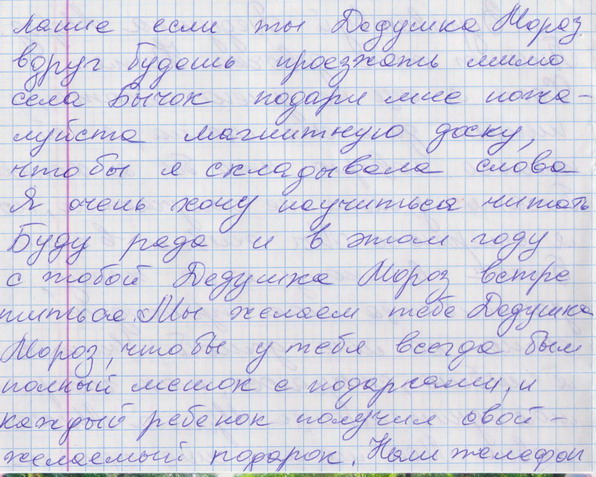 лание если ты Дедушка Мороз
вдруг будешь проезжать мимо
села Бычок подари мне пожа-
луйста магнитную доску,
чтобы я складывала слова
Я очень хочу научиться читать
Буду рада и в этом году
с тобой Дедушка Мороз встре
титься. Мы желаем тебе Дедушка
Мороз, чтобы у тебя всегда был
полный мешок с подарками, и
каждый ребенок получил свой-
желаемый подарок. Наш телефон